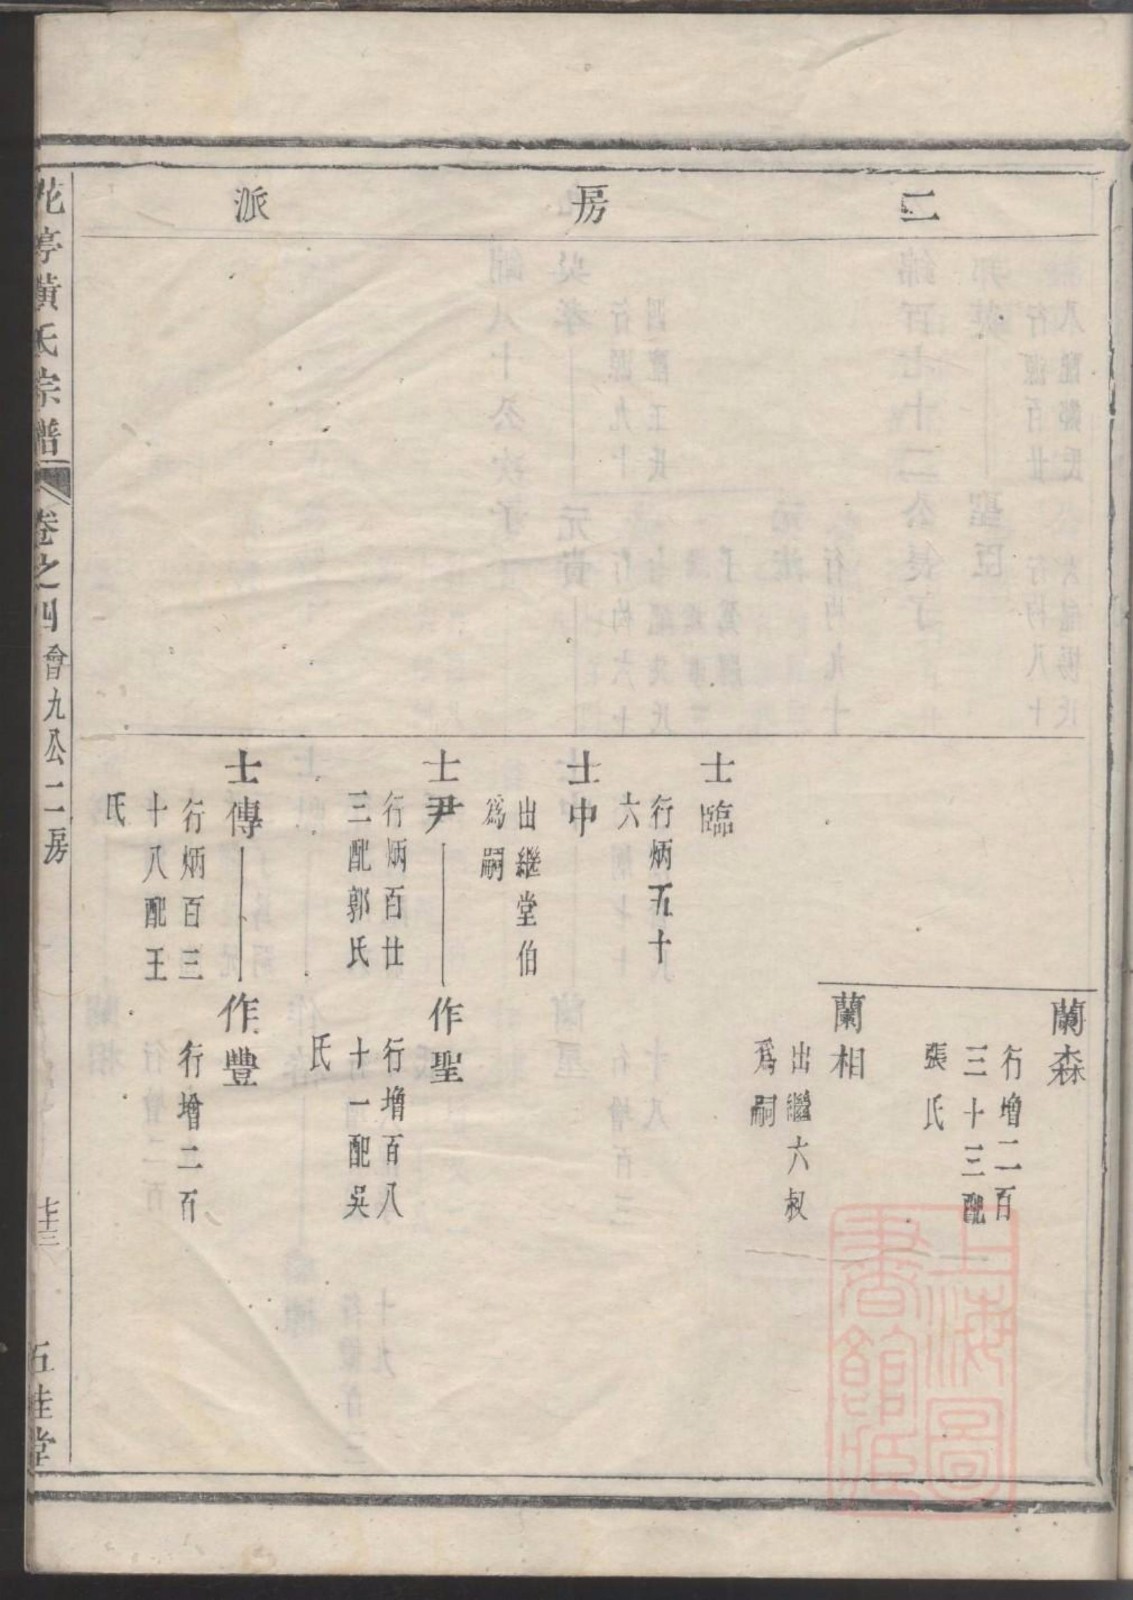 二房派
蘭森
行增二百
三十三配
張氏
蘭相
出繼六叔
爲嗣
士臨
行炳五十
六
士中
出繼堂伯
爲嗣
士尹
行炳百廿
三配郭氏
作聖
行增百八
十一配吳
氏
士傳
行炳百三
十八配王
氏
作豐
行增二百
花亭黃氏宗譜
卷之四
會九公二房
五桂堂
上海圖
書館藏